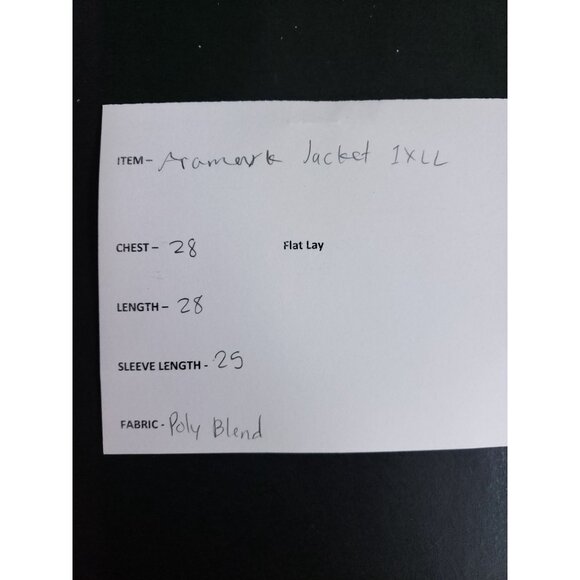 ITEM – Aramark Jacket 1XLL
CHEST – 28 Flat Lay
LENGTH – 28
SLEEVE LENGTH - 25
FABRIC - Poly Blend